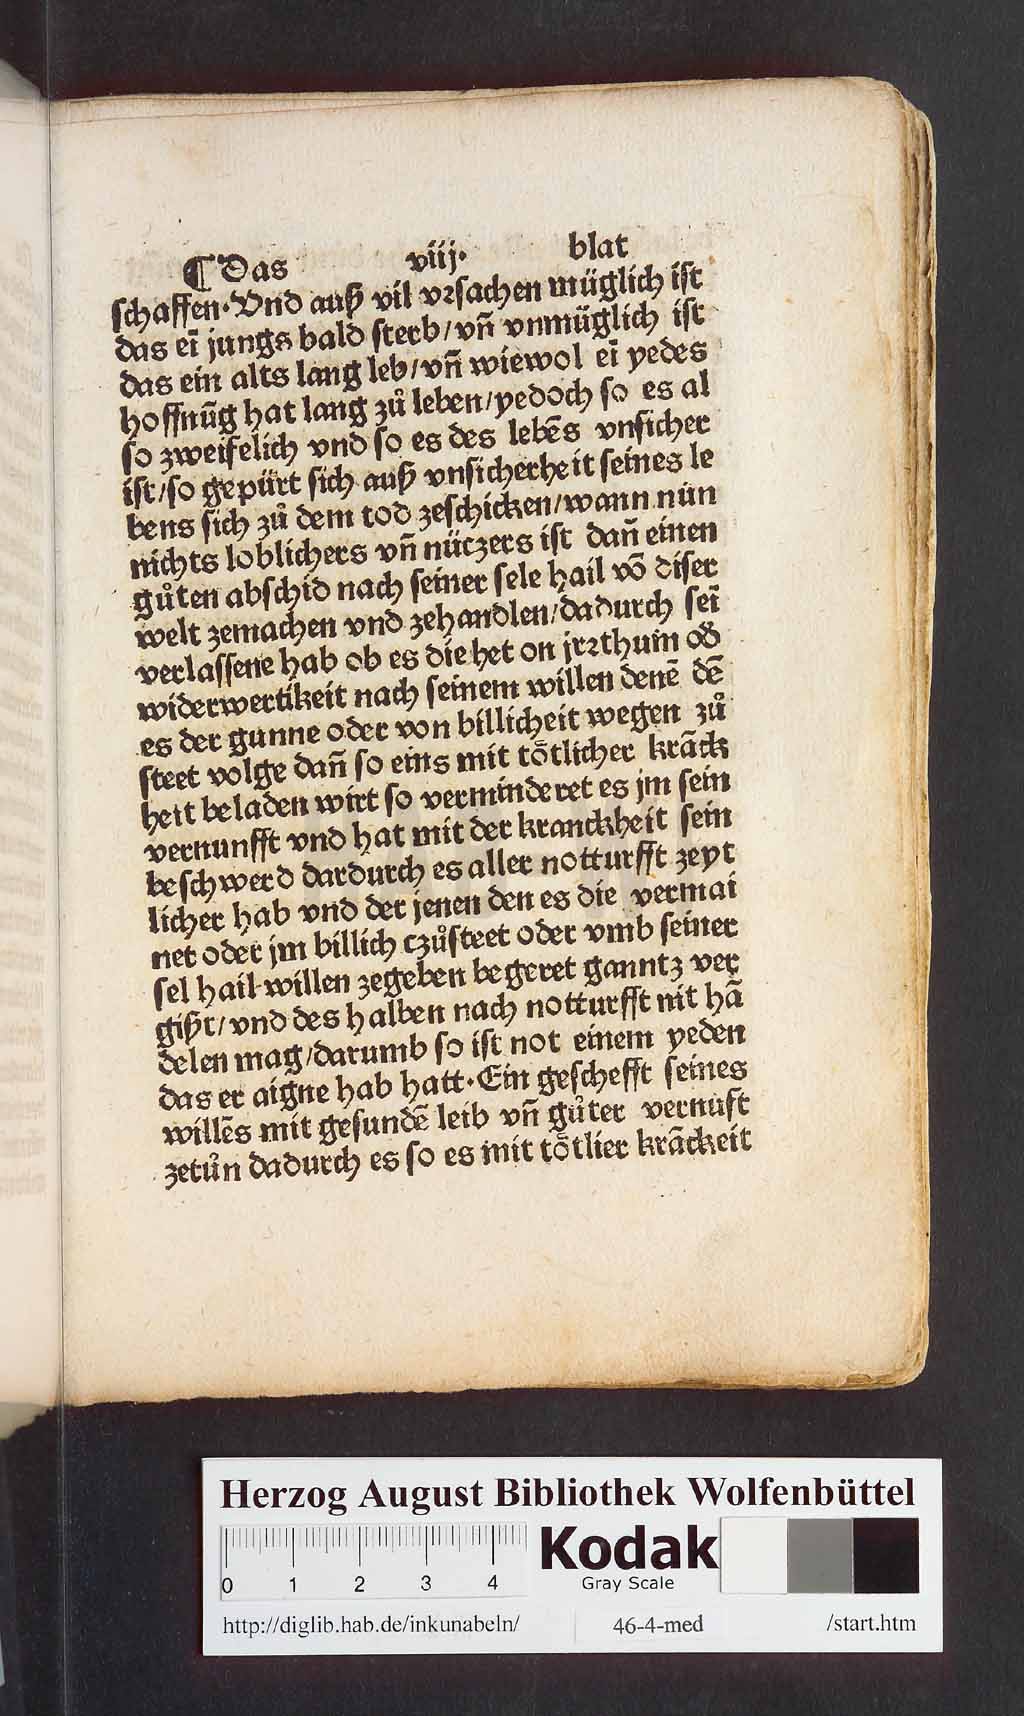 ¶ Das viij· blat
schaffen·Vnd auß vil vrsachen müglich ist
das eī jungs bald sterb/vn̄ vnmüglich ist
das ein alts lang leb/vn̄ wiewol eī yedes
hoffnūg hat lang zů leben/yedoch so es al
so zweifelich vnd so es des lebēs vnsicher
ist/so gepürt sich auß vnsicherheit seines le
bens sich zů dem tod zeschicken/wann nün
nichts loblichers vn̄ nüczers ist dan̄ einen
gůten abschid nach seiner sele hail vō diser
welt zemachen vnd zehandlen/dadurch seī
verlassene hab ob es die het on jrrthum od̕
widerwertikeit nach seinem willen denē dē
es der gunne oder von billicheit wegen zů
steet volge dan̄ so eins mit tötlicher krāck
heit beladen wirt so verminderet es jm sein
vernunfft vnd hat mit der kranckheit sein
beschwerd dardurch es aller notturfft zeyt
licher hab vnd der jenen den es die vermai
net oder jm billich czůsteet oder vmb seiner
sel hail willen zegeben begeret ganntz ver
gißt/vnd des halben nach notturfft nit hā
delen mag/darumb so ist not einem yeden
das er aigne hab hatt·Ein geschefft seines
willēs mit gesundē leib vn̄ gůter vernuft
zetůn dadurch es so es mit tötlier krāckeit
Herzog August Bibliothek Wolfenbüttel
0 1 2 3 4
Kodak
Gray Scale
http://diglib.hab.de/inkunabeln/ 46-4-med /start.htm